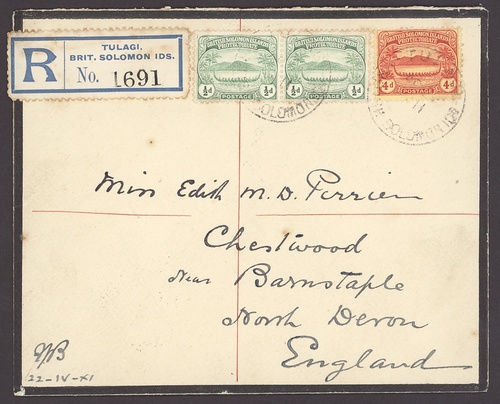 R
TULAGI,
BRIT. SOLOMON IDS.
No. 1691
BRITISH SOLOMON ISLANDS
PROTECTORATE
½d POSTAGE ½d
BRITISH SOLOMON ISLANDS
PROTECTORATE
½d POSTAGE ½d
BRITISH SOLOMON ISLANDS
PROTECTORATE
4d POSTAGE 4d
SOLOMON
SOLOMON IDS
Miss Edith M. D. Perrier
Chestwood
Near Barnstaple
North Devon
England
22-IV-XI